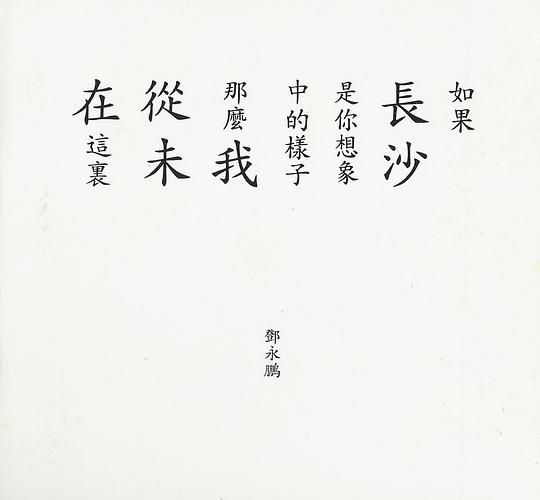 如果
長沙
是你想象
中的樣子
那麼我
從未
在這裏
鄧永鵬